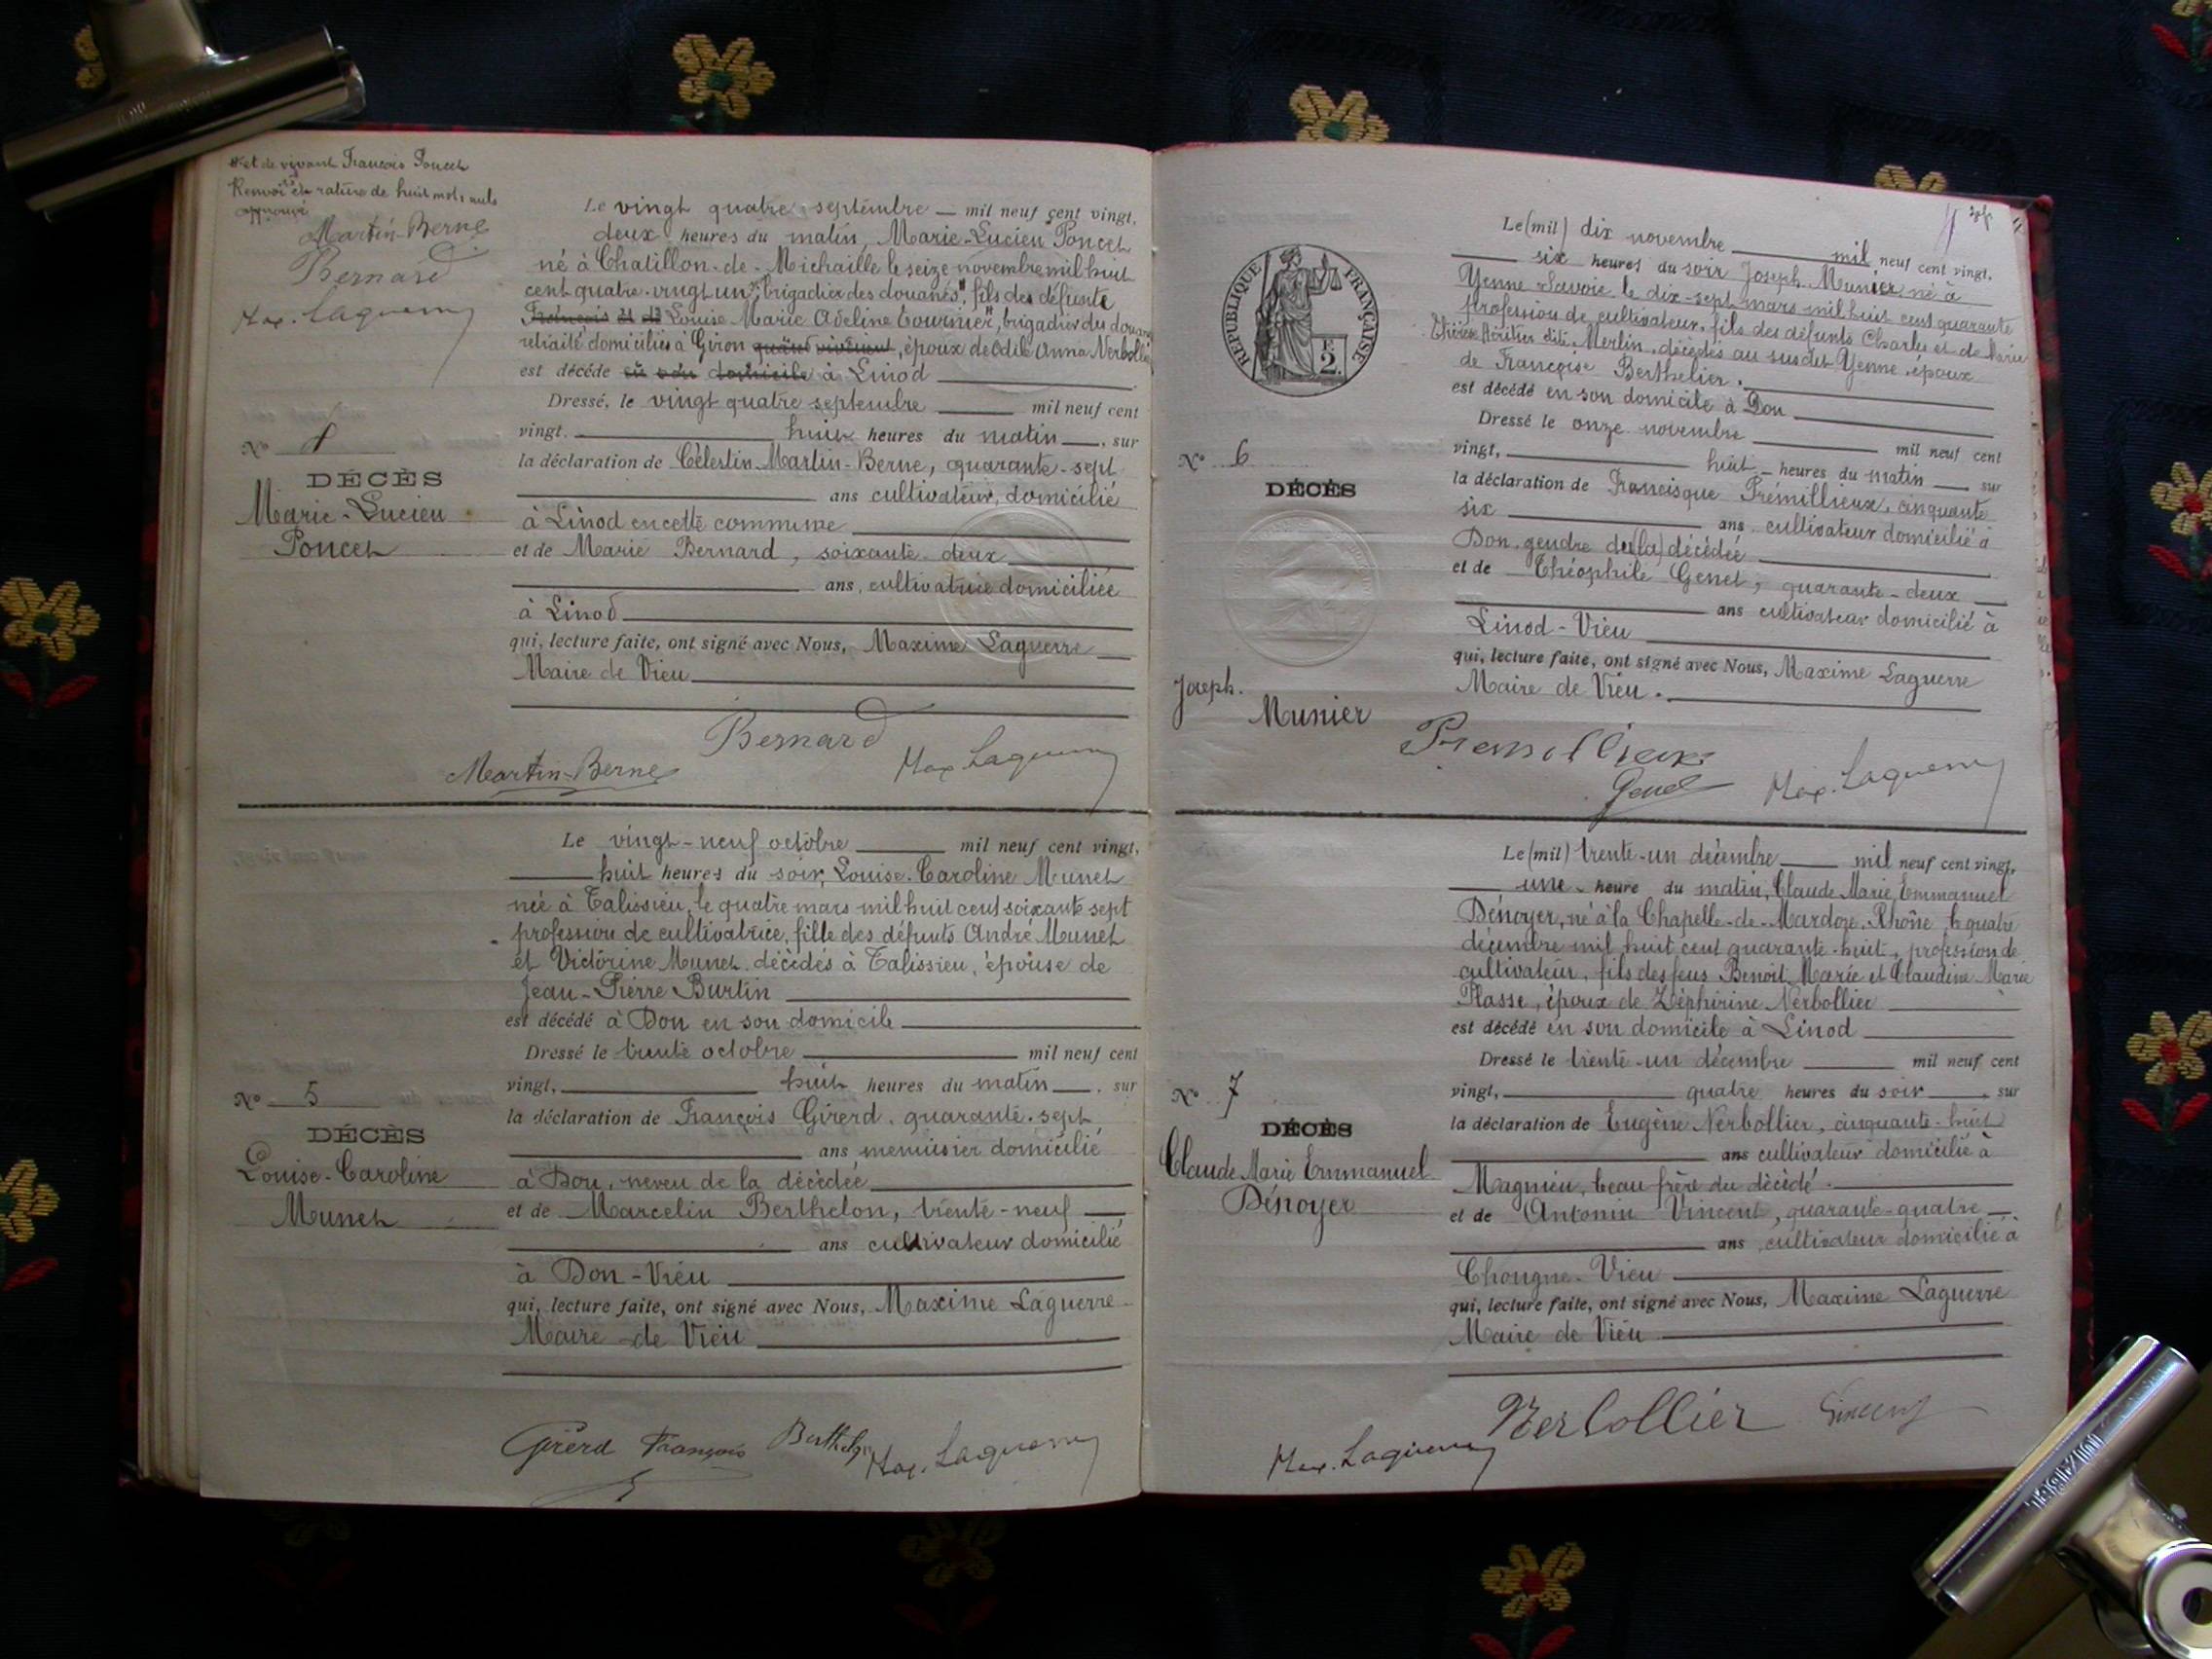 et de vivant François Poncet
Renvoi et rature de huit mots nuls
approuvé
Martin-Berne
Bernard
Max. Laguerre
Le vingt quatre septembre — mil neuf cent vingt,
deux heures du matin, Marie-Lucien Poncet
né à Chatillon-de-Michaille le seize novembre mil huit
cent quatre-vingt un, brigadier des douanes, fils des défunte
François et de Louise Marie Adeline Tournier, brigadier des douanes
retraité domicilié à Giron quand vivaient, époux de Odile Anna Nerbollier
est décédé en son domicile à Linod
Dressé, le vingt quatre septembre mil neuf cent
vingt. huit heures du matin, sur
la déclaration de Célestin Martin-Berne, quarante-sept
ans cultivateur, domicilié
à Linod en cette commune
et de Marie Bernard, soixante-deux
ans, cultivatrice domiciliée
à Linod
qui, lecture faite, ont signé avec Nous, Maxime Laguerre
Maire de Vieu
Bernard
Martin-Berne Max Laguerre
N°
DÉCÈS
Marie-Lucien
Poncet
Le vingt-neuf octobre mil neuf cent vingt,
huit heures du soir, Louise-Caroline Munet
née à Talissieu, le quatre mars mil huit cent soixante sept
profession de cultivatrice, fille des défunts André Munet
et Victorine Munet décédés à Talissieu, épouse de
Jean-Pierre Burtin
est décédé à Don en son domicile
Dressé le trente octobre mil neuf cent
vingt, huit heures du matin, sur
la déclaration de François Girerd, quarante-sept
ans menuisier domicilié
à Don, neveu de la décédée
et de Marcelin Berthelon, trente-neuf
ans cultivateur domicilié
à Don-Vieu
qui, lecture faite, ont signé avec Nous, Maxime Laguerre
Maire de Vieu
Girerd François Berthelon Max. Laguerre
N° 5
DÉCÈS
Louise-Caroline
Munet
RÉPUBLIQUE FRANÇAISE
2
Le (mil) dix novembre mil neuf cent vingt,
six heures du soir Joseph Munier, né à
Yenne Savoie, le dix-sept mars mil huit cent quarante
profession de cultivateur, fils des défunts Charles et de Marie
Merlin, décédés au susdit Yenne, époux
de Françoise Berthelier.
est décédé en son domicile à Don
Dressé le onze novembre mil neuf cent
vingt, huit heures du matin sur
la déclaration de Francisque Prémillieux, cinquante
six ans cultivateur domicilié à
Don, gendre du (la) décédée
et de Théophile Genet, quarante-deux
ans cultivateur domicilié à
Linod-Vieu
qui, lecture faite, ont signé avec Nous, Maxime Laguerre
Maire de Vieu.
Premillieux
Genet Max. Laguerre
N° 6
DÉCÈS
Joseph.
Munier
Le (mil) trente-un décembre mil neuf cent vingt,
une heure du matin, Claude Marie Emmanuel
Dénoyer, né à la Chapelle-de-Mardore, Rhône, le quatre
décembre mil huit cent quarante-huit, profession de
cultivateur, fils des feus Benoît Marie et Claudine Marie
Plasse, époux de Zéphirine Nerbollier
est décédé en son domicile à Linod
Dressé le trente-un décembre mil neuf cent
vingt, quatre heures du soir, sur
la déclaration de Eugène Nerbollier, cinquante-huit
ans cultivateur domicilié à
Magnieu, beau frère du décédé.
et de Antonin Vincent, quarante-quatre
ans, cultivateur domicilié à
Chongne-Vieu
qui, lecture faite, ont signé avec Nous, Maxime Laguerre
Maire de Vieu
Nerbollier Vincent
Max. Laguerre
N° 7
DÉCÈS
Claude Marie Emmanuel
Dénoyer